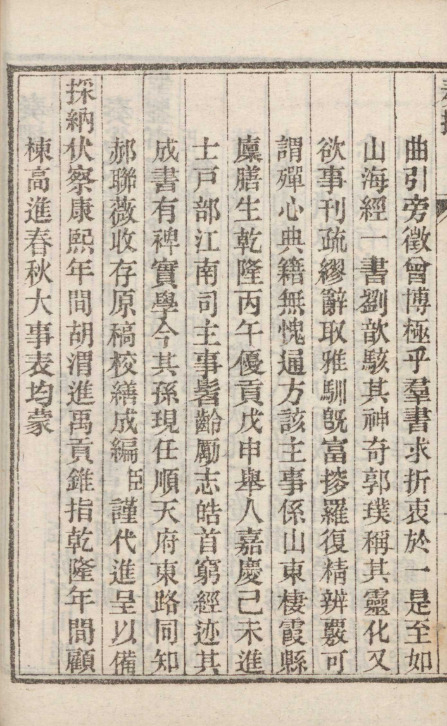 曲引旁徵曾博極乎羣書求折衷於一是至如
山海經一書劉歆駭其神奇郭璞稱其靈化又
欲事刊疏繆辭取雅馴旣富搜羅復精辨覈可
謂殫心典籍無愧通方該主事係山東棲霞縣
廩膳生乾隆丙午優貢戊申舉人嘉慶己未進
士戶部江南司主事髫齡勵志皓首窮經迹其
成書有裨實學今其孫現任順天府東路同知
郝聯薇收存原稿校繕成編臣謹代進呈以備
採納伏察康熙年間胡渭進禹貢錐指乾隆年間顧
棟高進春秋大事表均蒙